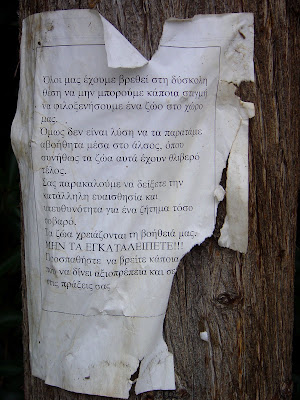 Όλοι μας έχουμε βρεθεί στη δύσκολη
θέση να μην μπορούμε κάποια στιγμή
να φιλοξενήσουμε ένα ζώο στο χώρο
μας.
Όμως δεν είναι λύση να τα παρατάμε
αβοήθητα μέσα στο άλσος, όπου
συνήθως τα ζώα αυτά έχουν θλιβερό
τέλος.
Σας παρακαλούμε να δείξετε την
κατάλληλη ευαισθησία και
υπευθυνότητα για ένα ζήτημα τόσο
σοβαρό.
Τα ζώα χρειάζονται τη βοήθειά μας.
ΜΗΝ ΤΑ ΕΓΚΑΤΑΛΕΙΠΕΤΕ!!!
Προσπαθήστε να βρείτε κάποια
που να δίνει αξιοπρέπεια και σε
στις πράξεις σας